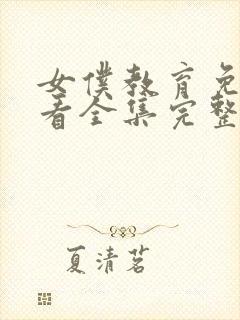 女僕教育免
看全集完整
夏清茗